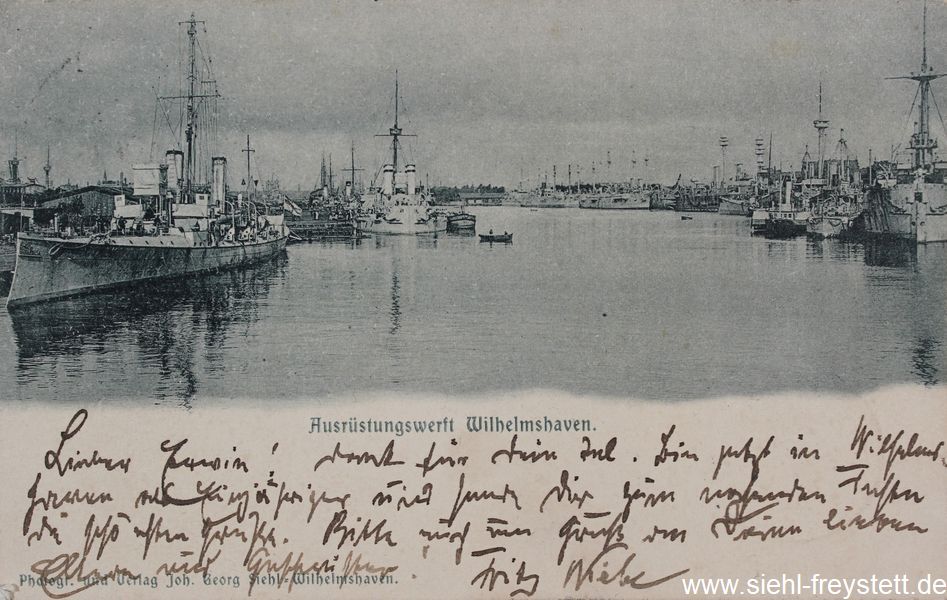 Ausrüstungswerft Wilhelmshaven.
Lieber Erwin! dank für dein Tel. Bin jetzt in Wilhelms-
haven als Einjähriger und sende Dir zum
die schönsten Grüße. Bitte auch um Gruß an Deine lieben
Eltern und Geschwister. Fritz
Photogr. und Verlag Joh. Georg Siehl-Wilhelmshaven.
www.siehl-freystett.de